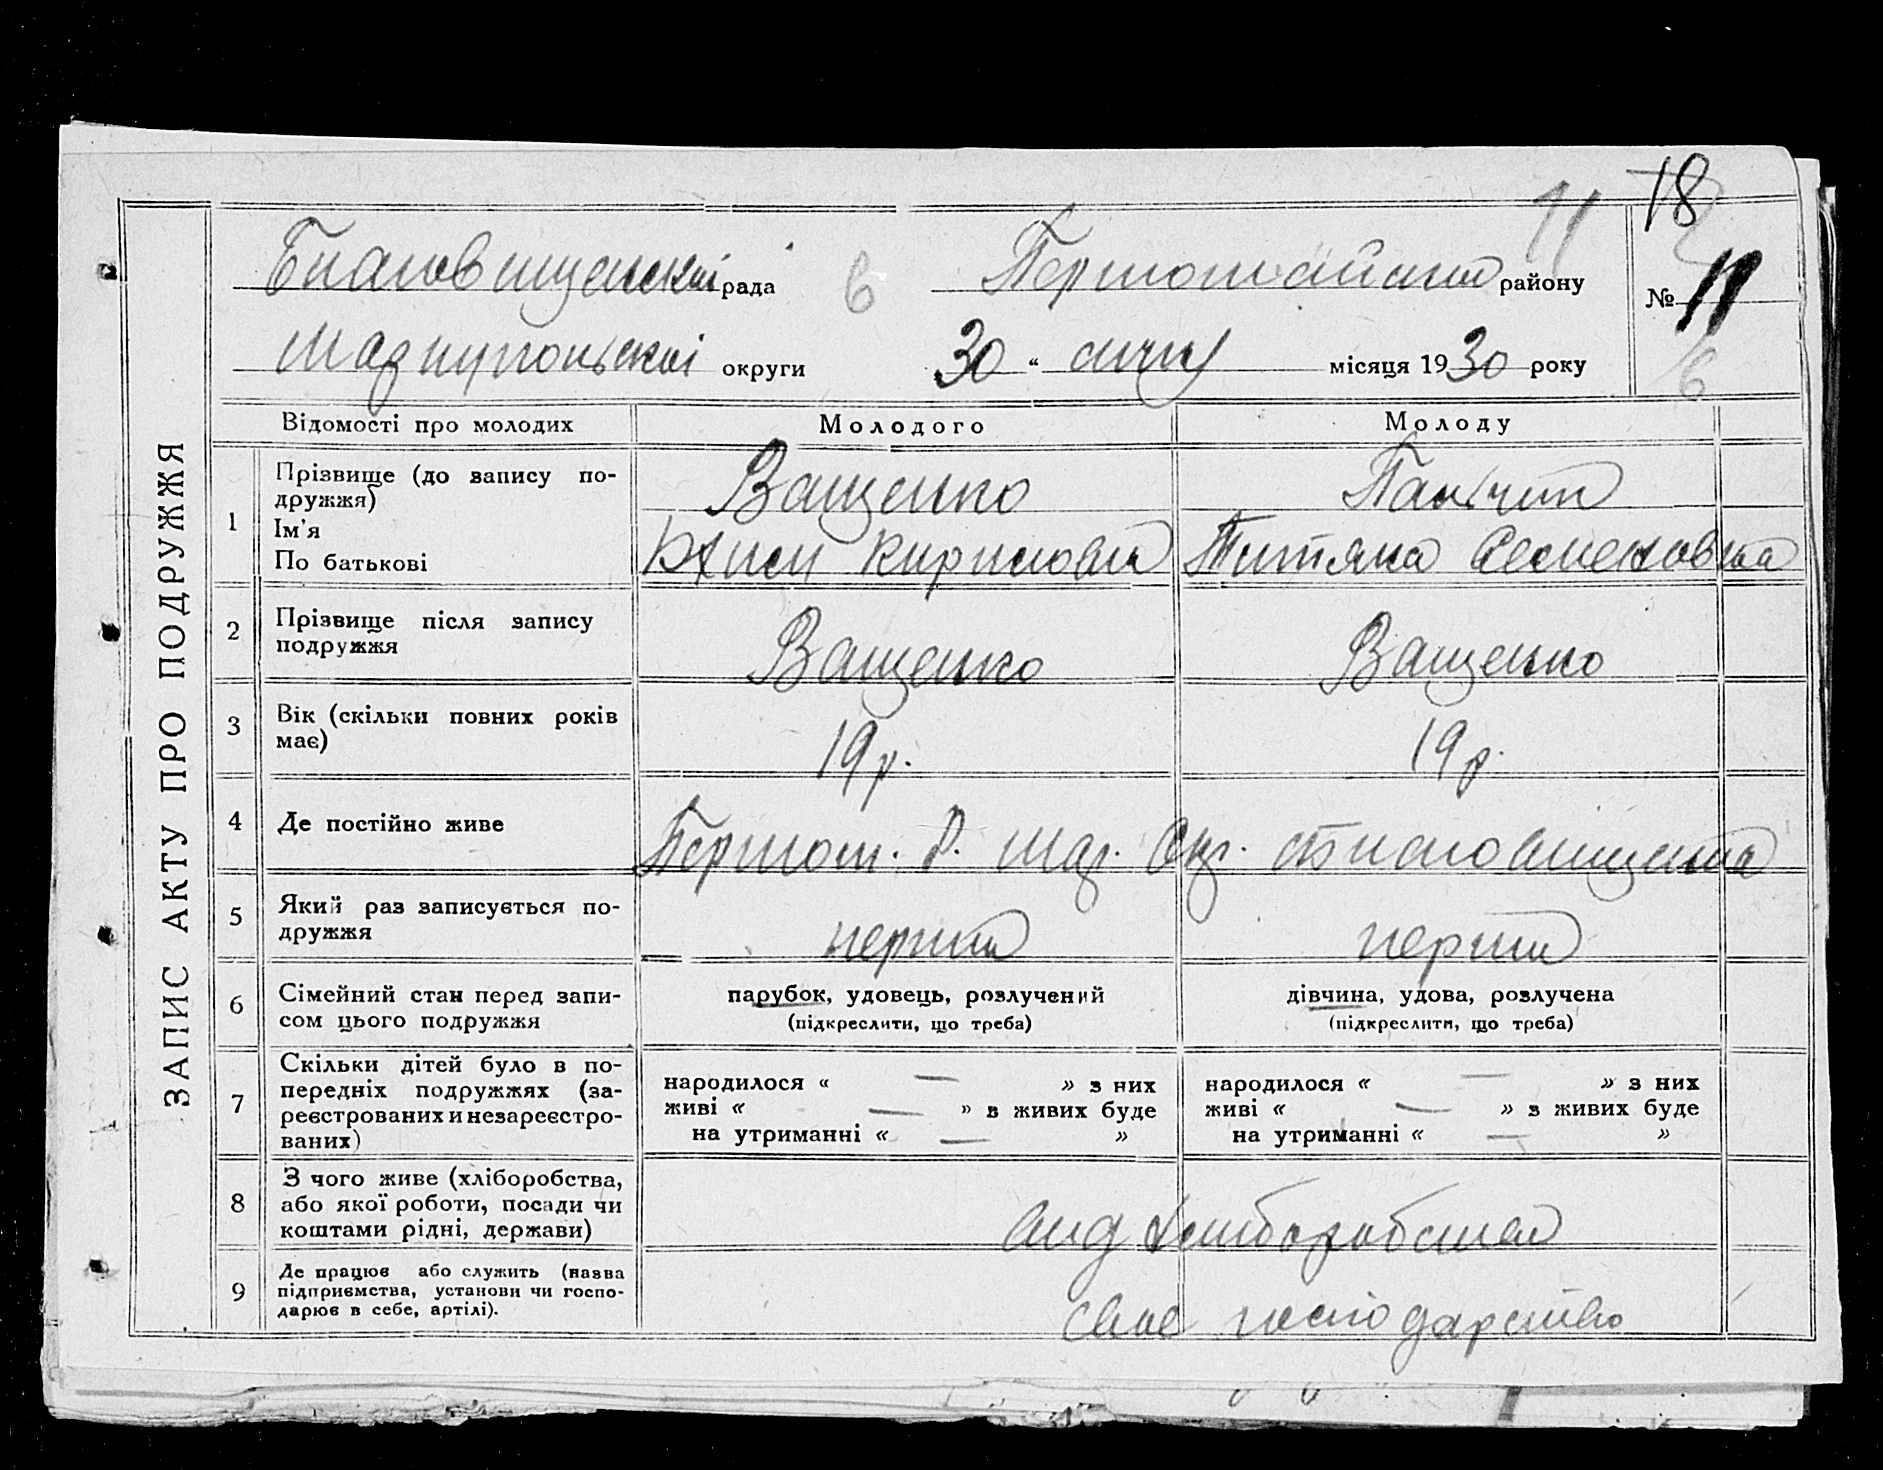 18
11
Благовищенскаі рада
6
Першотравневаго району
№ 11
Мариупольскаі округи
30 “ січня місяця 1930 року
6
ЗАПИС АКТУ ПРО ПОДРУЖЖЯ
Відомості про молодих
Молодого
Молоду
1
Прізвище (до запису по-
дружжя)
Ім’я
По батькові
Ващенко
Кирилови
Татяна Семеновна
2
Прізвище після запису
подружжя
Ващенко
Ващенко
3
Вік (скільки повних років
має)
19 р.
19 р.
4
Де постійно живе
Першотр. Р. Мар. Окр.
5
Який раз записується по-
дружжя
перши
перши
6
Сімейний стан перед запи-
сом цього подружжя
парубок, удовець, розлучений
(підкреслити, що треба)
дівчина, удова, розлучена
(підкреслити, що треба)
7
Скільки дітей було в по-
передніх подружжях (за-
реєстрованих и незареєстро-
ваних)
народилося « — » з них
живі « — » в живих буде
на утриманні « — »
народилося « — » з них
живі « — » з живих буде
на утриманні « — »
8
З чого живе (хліборобства,
або якої роботи, посади чи
коштами рідні, держави)
від
9
Де працює або служить (назва
підприємства, установи чи госпо-
дарює в себе, артілі).
своє господарство